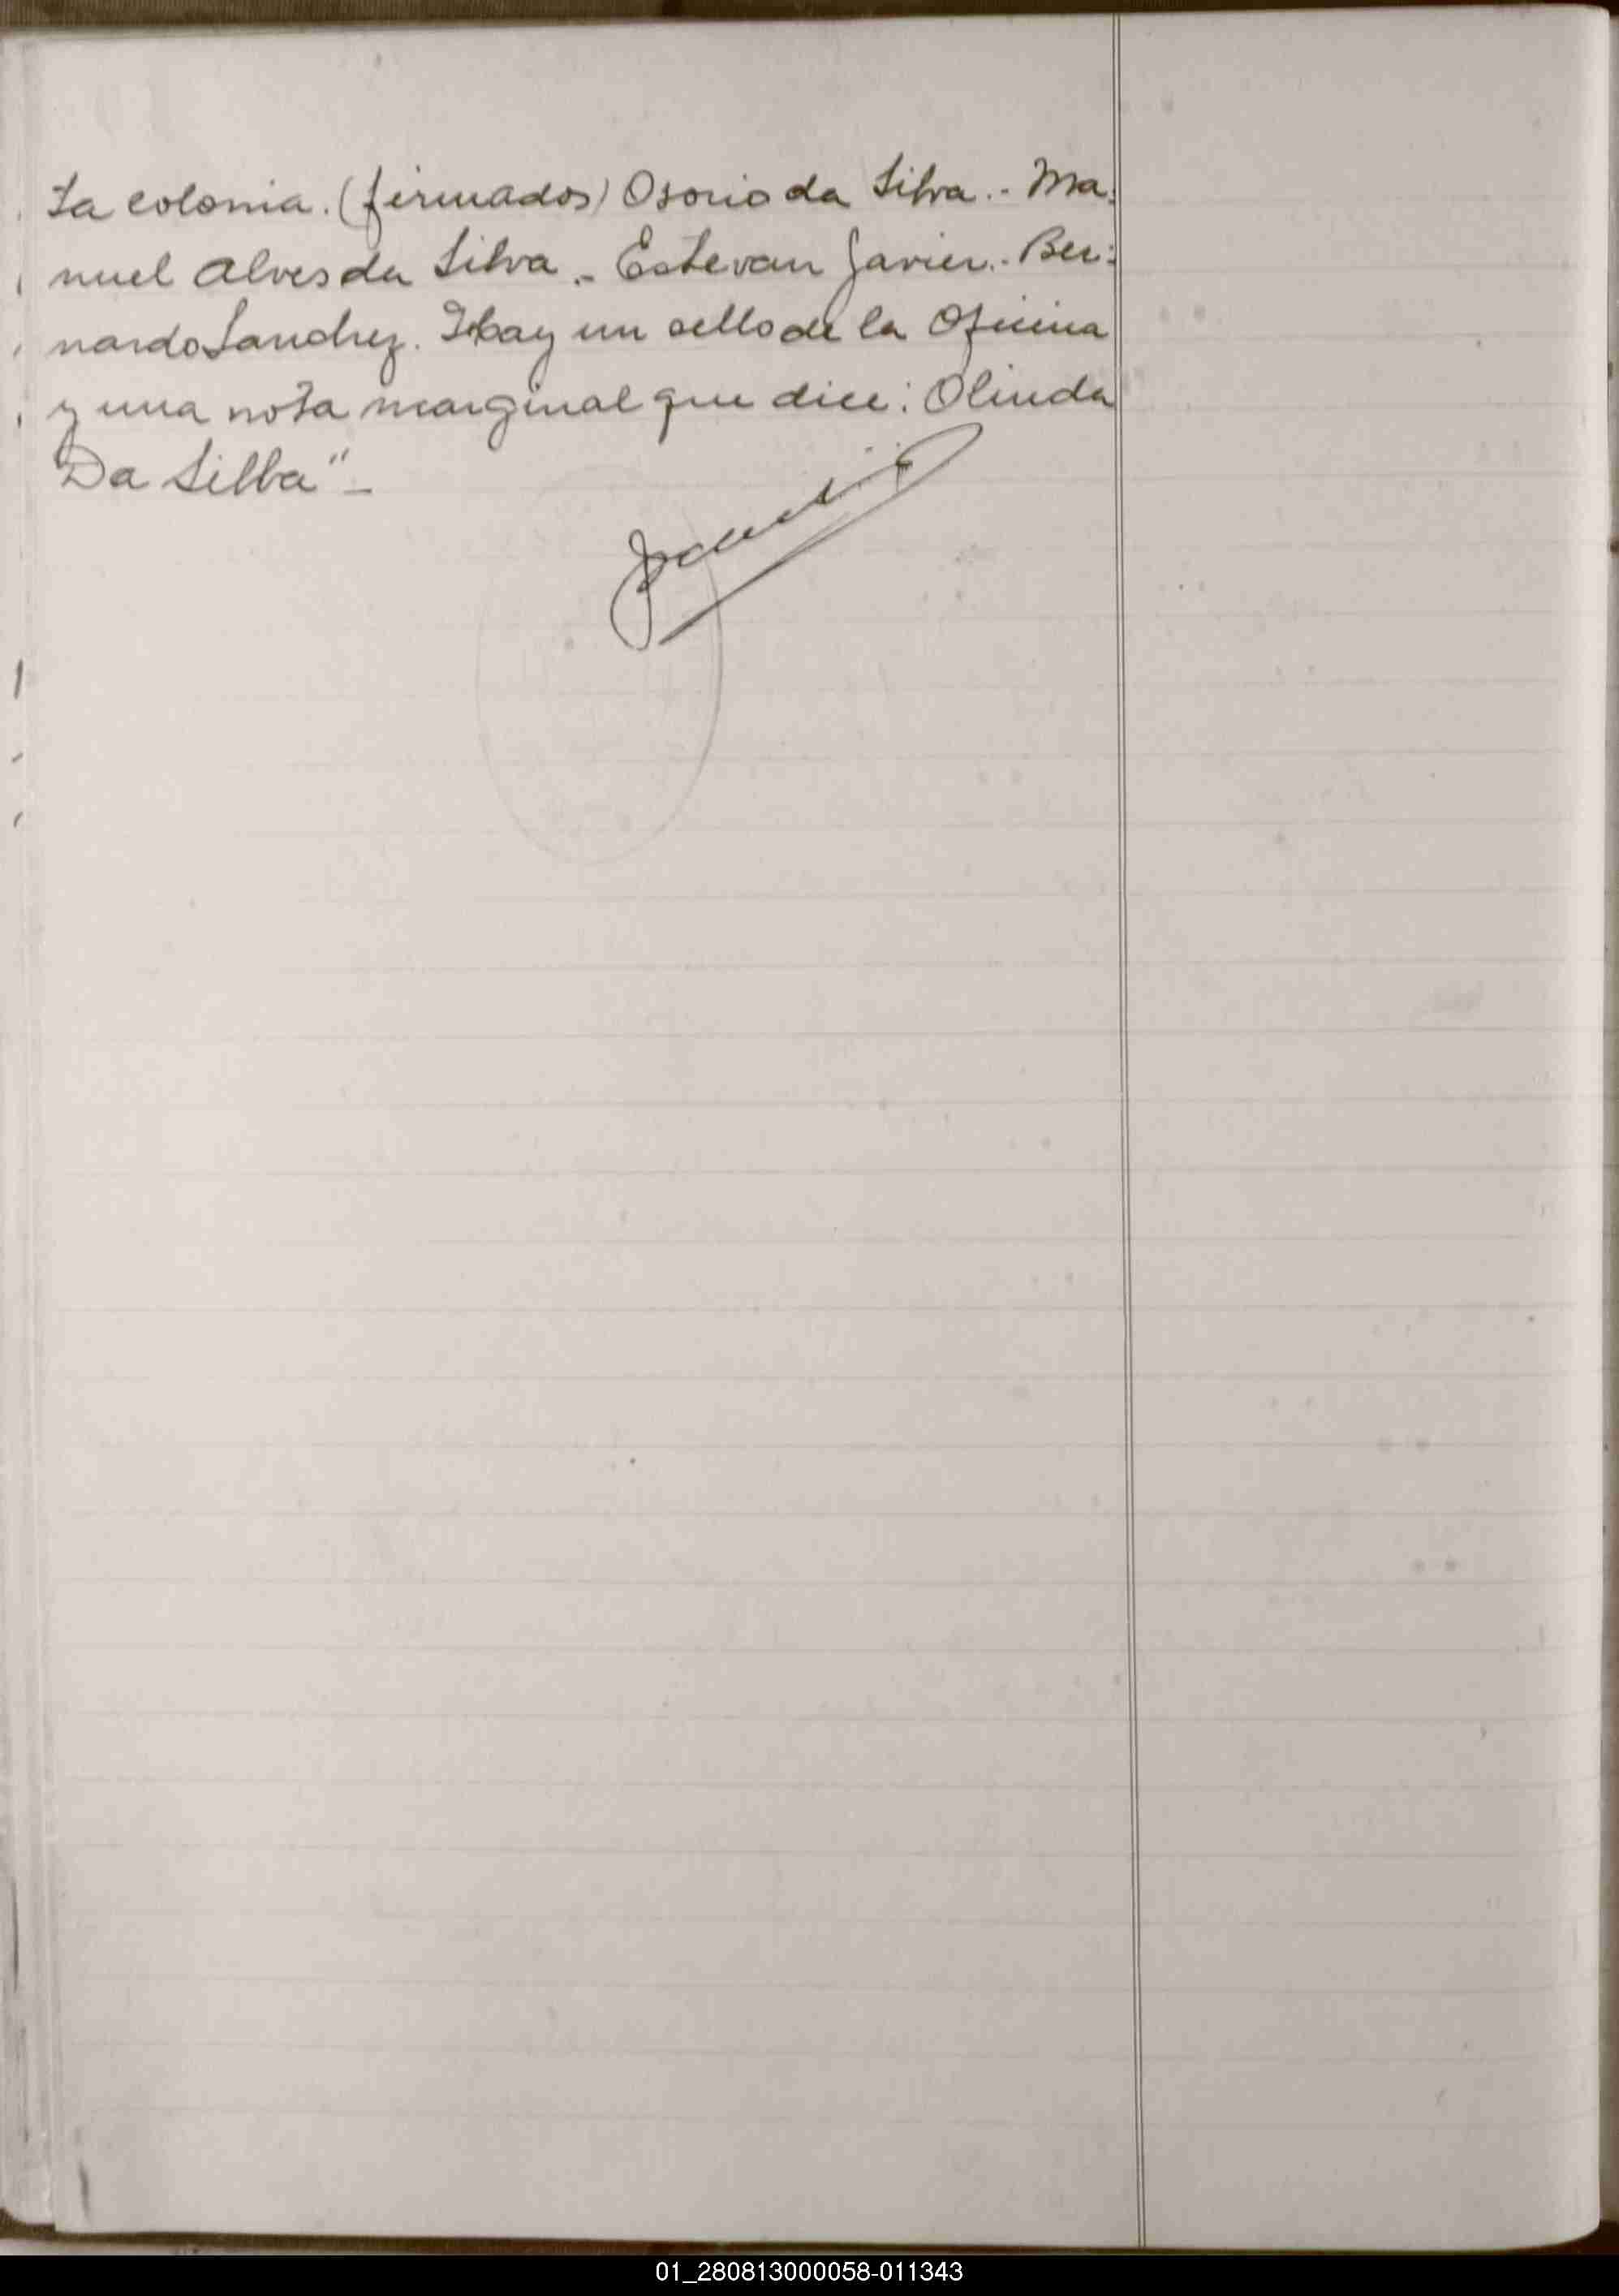 ta colonia. (firmados) Osorio da Silva.- Ma-
nuel Alves da Silva.- Estevan Javier.- Ber-
nardo Sanchez. Hay un sello de la Oficina
y una nota marginal que dice: Olinda
Da Silba"-
01_280813000058-011343